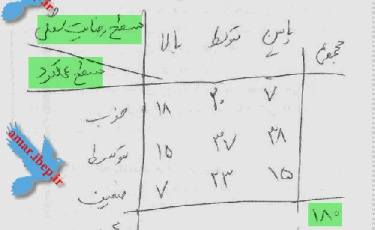 سطح رضایت شغلی
بالا متوسط پایین مجموع
سطح عملکرد
خوب ۱۸ ۲۰ ۷
متوسط ۱۵ ۳۷ ۳۸
ضعیف ۷ ۲۳ ۱۵
۱۸۰
amar.ibep.ir
amar.ibep.ir